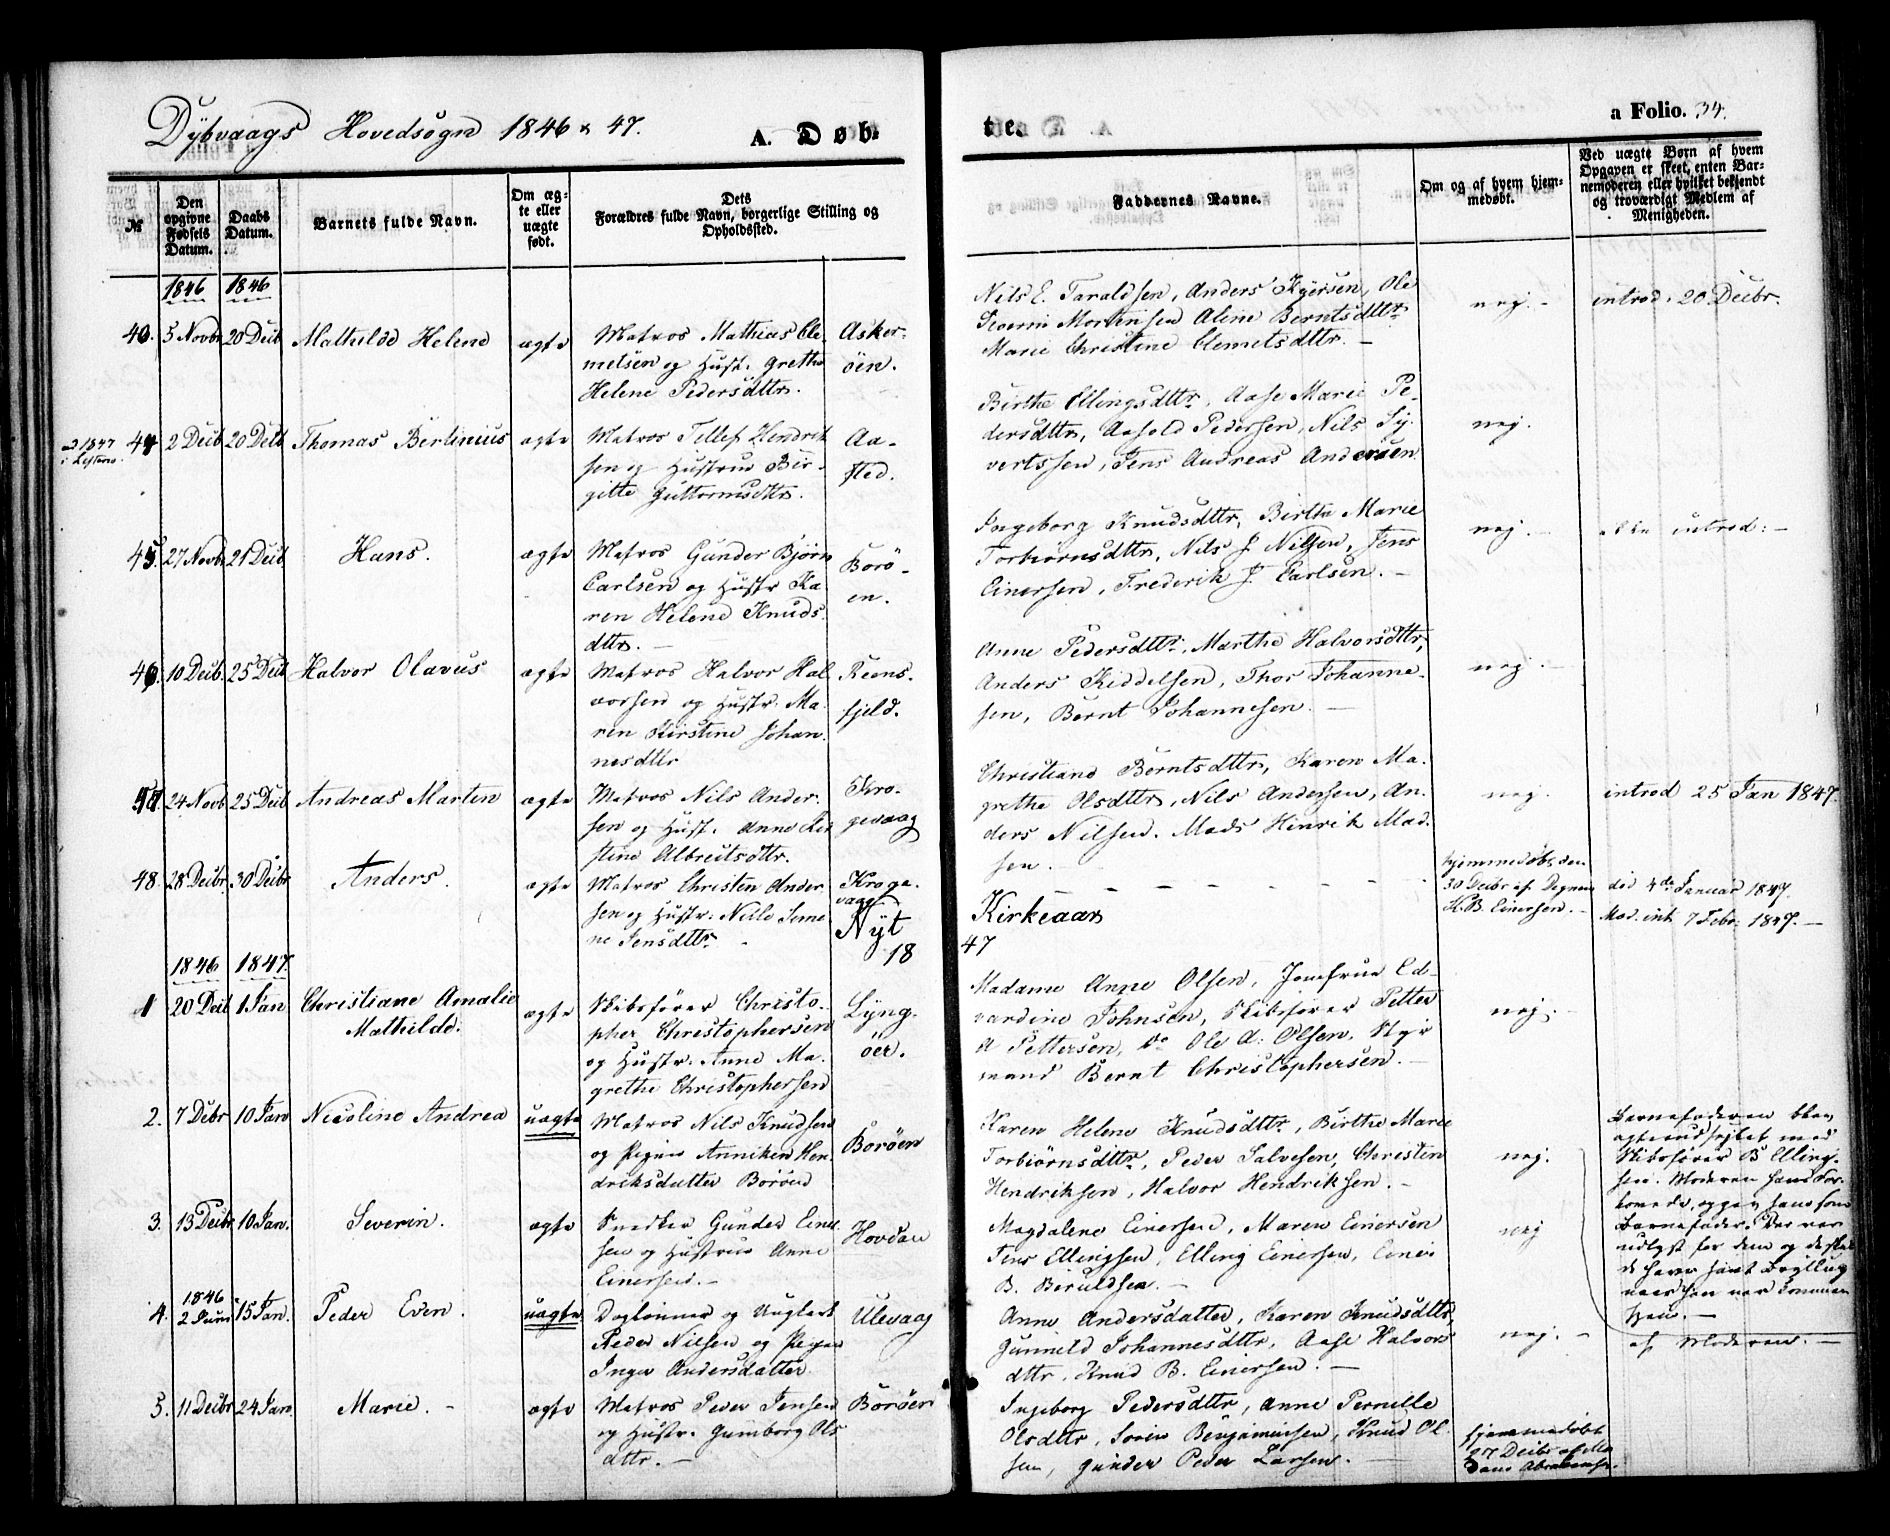 Dybvaags Hovedsogn 1846 & 47.
A. Døb-
te.
a Folio. 34.
№
Den opgivne Fødsels Datum.
Daabs Datum.
Barnets fulde Navn.
Om ægte eller uægte født.
Dets Forældres fulde Navn, borgerlige Stilling og Opholdssted.
Faddernes Navne.
Om og af hvem hjemmedøbt.
Ved uægte Børn af hvem Opgaven er skeet, enten Barnemoderen eller hvilket bekjendt og troværdigt Medlem af Menigheden.
1846 1846
5 Novbr 20 Decb Mathilde Helene ægte
Matros Mathias Cle-
metsen og Hust. Grethe
Helene Pedersdttr.
Asker-
öen.
Nils E. Taraldsen, Anders Ole
Severin Mortensen Aline Berntsdttr
Marie Christine Clemetsdttr. -
nej. -
introd. 20 Decbr.
44 2 Decb 20 Decb Thomas Bertinius ægte
Matros Tellef Hendrik
sen og Hustrue Bir-
gitte Guttormsdttr.
Aa-
sted.
Birthe Ellingsdttr, Aase Marie Pe-
dersdttr, Aasold Pedersen, Nils Sy-
vertssen, Jens Andreas Andersen
nej.
45. 27 Novb 21 Decb Hans. ægte
Matros Gunder Bjørn
Carlsen og Hustr Ka-
ren Helene Knuds-
dttr. -
Borö-
en.
Ingeborg Knudsdttr, Birthe Marie
Torbiörnsdttr, Nils J. Nilsen, Jens
Einersen, Frederik J. Carlsen. -
nej. -
ikke introd: -
46. 10 Decb. 25 Decb Halvor Olavus ægte
Matros Halvor Hal
vorsen og Hustr. Ma-
ren Kirstine Johan-
nesdttr
Reens-
fjeld.
Anne Pedersdttr, Marthe Halvorsdttr,
Anders Kiddelsen, Thor Johanne-
sen, Bernt Johannesen. -
nej. -
47. 24 Novb 25 Decb Andreas Martin ægte
Matros Nils Ander-
sen og Hust. Anne Kir
stine Albreitsdttr.
Kro-
gevaag
Christiane Berntsdttr, Karen Ma-
grethe Olsdttr, Nils Andersen, An-
ders Nilsen. Mads Hinrik Mad-
sen.
nej.
introd 25 Jan 1847.
48. 28 Decbr. 30 Decbr Anders. ægte
Matros Christen Ander-
sen og Hustr:
ne Jensdttr -
Kroge-
vaag
hjemmedöbt den
30 Decbr af Degnen
H. B. Einersen. -
död 4de Januar 1847.
Mod. int 7 Febr. 1847. -
Nyt Kirkeaar
18 47
1846 1847.
1 20 Decb 1 Jan Christiane Amalie
Mathilde. ægte
Skibsförer Christo-
pher Christophersen
og Hustr. Anne Ma-
grethe Christophersen
Lyng-
öer.
Madame Anne Olsen, Jomfrue Ed-
vardine Johnsen, Skibsförer Petter
A Pettersen, do Ole A: Olsen, Styr
mand Bernt Christophersen. -
nej. -
2. 7 Debr 10 Jan Nicoline Andrea uægte
Matros Nils Knudsen
og Pigen Anniken Hen-
driksdatter Boröen
Boröen
Karen Helene Knudsdttr, Birthe Marie
Torbiörnsdttr, Peder Salvesen, Christen
Hendriksen, Halvor Hendriksen. -
nej.
Barnefaderen blev
med
Skibsförer B Elling-
sen. Moderen hans For-
som
Barnefader. Der var
udlyst for dem og
3. 13 Decbr 10 Jan. Severin. ægte
Snedker Gunder Einer
sen og Hustrue Anne
Einersen. -
Hovdan
Magdalene Einersen, Maren Einersen
Jens Ellingsen, Elling Einersen, Einer
B. -
nej
1846
4. 2 Juni 15 Jan. Peder Even. uægte
Daglönner og Ungkarl
Peder Nilsen og Pigen
Inger Andersdatter
Ulevaag
Anne Andersdatter, Karen Knudsdttr,
Gunnild Johannesdttr, Aase Halvors
dttr, Knud B. Einersen. -
nej. -
af Moderen. -
5. 11 Decbr 24 Jan. Marie. - ægte
Matros Peder Jensen
og Hustr. Gunborg Ols
dttr. -
Boröen
Ingeborg Pedersdttr, Anne Pernille
Olsdttr, Sören Benjaminsen, Knud Ol-
sen, Gunder Peder Larsen. -
hjemmedöbt
27 Decbr af Ma
dame